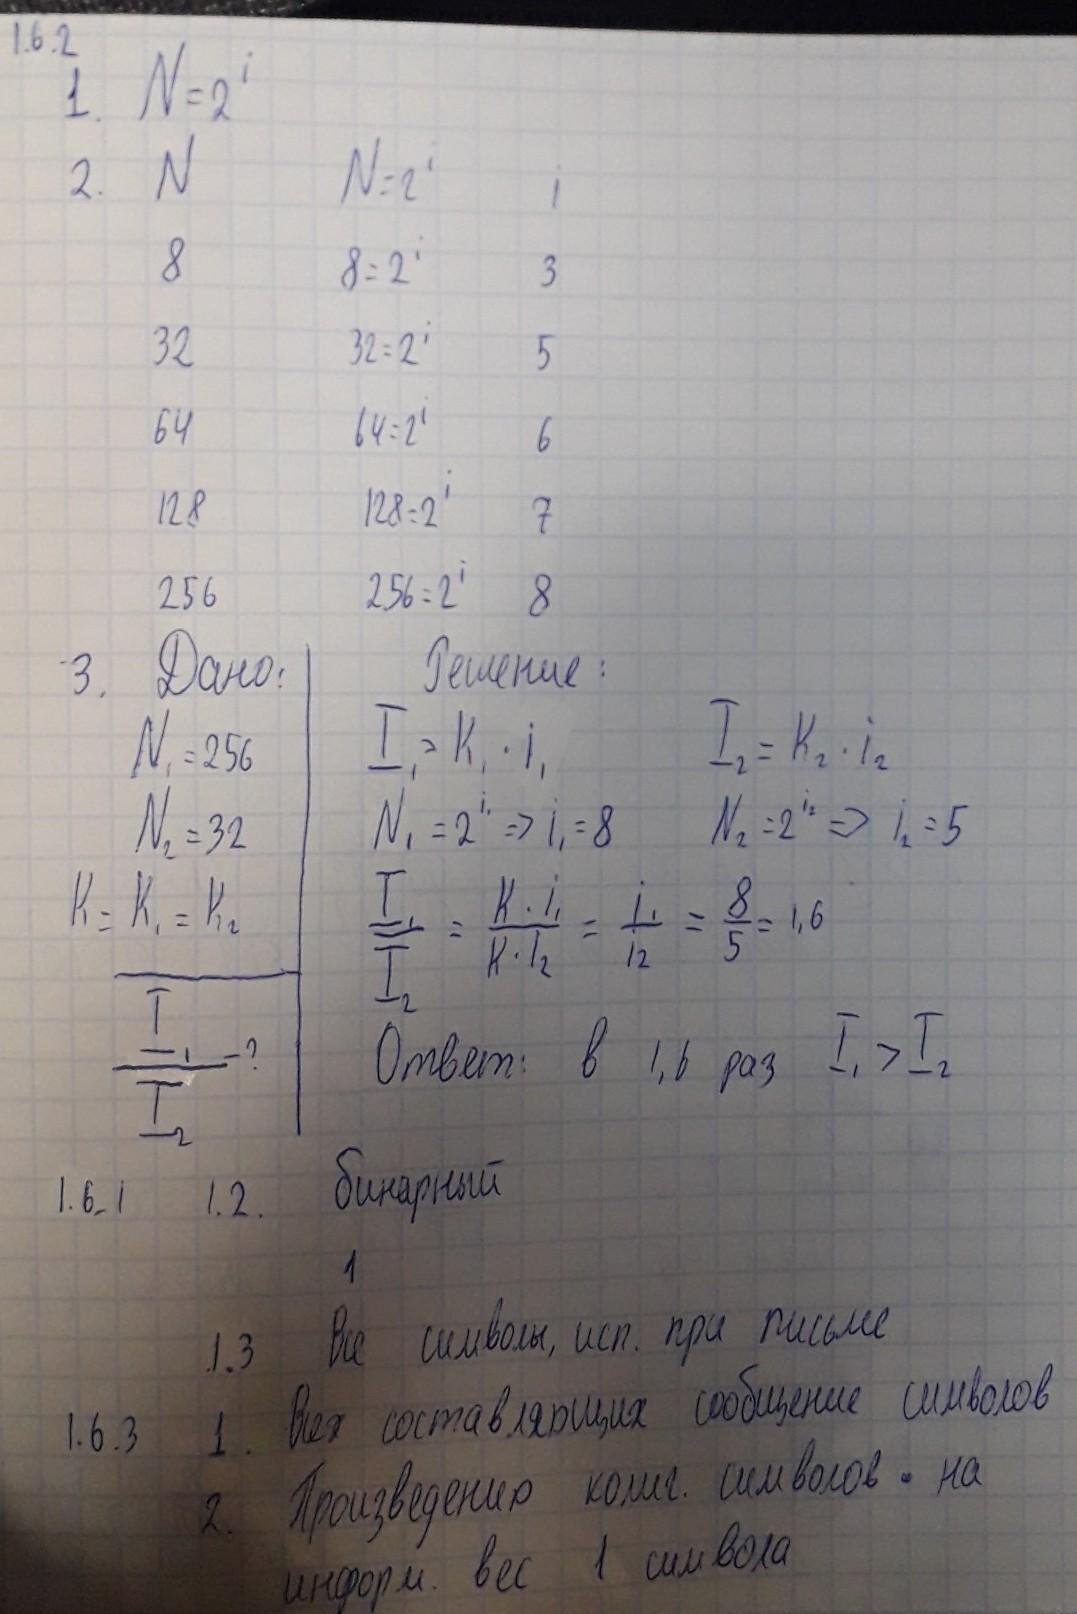 1.6.2
1. N=2^i
2. N N=2^i i
8 8=2^i 3
32 32=2^i 5
64 64=2^i 6
128 128=2^i 7
256 256=2^i 8
3. Дано: Решение:
N₁=256 I₁=K₁·i₁ I₂=K₂·i₂
N₂=32 N₁=2^i₁=>i₁=8 N₂=2^i₂=>i₂=5
K=K₁=K₂ I₁/I₂ = K·i₁/K·i₂ = i₁/i₂ = 8/5 = 1,6
I₁/I₂-? Ответ: в 1,6 раз I₁>I₂
1.6.1 1.2. бинарный
1
1.3 Все символы, исп. при письме
1.6.3 1. Всех составляющих сообщение символов
2. Произведению колич. символов · на
информ. вес 1 символа